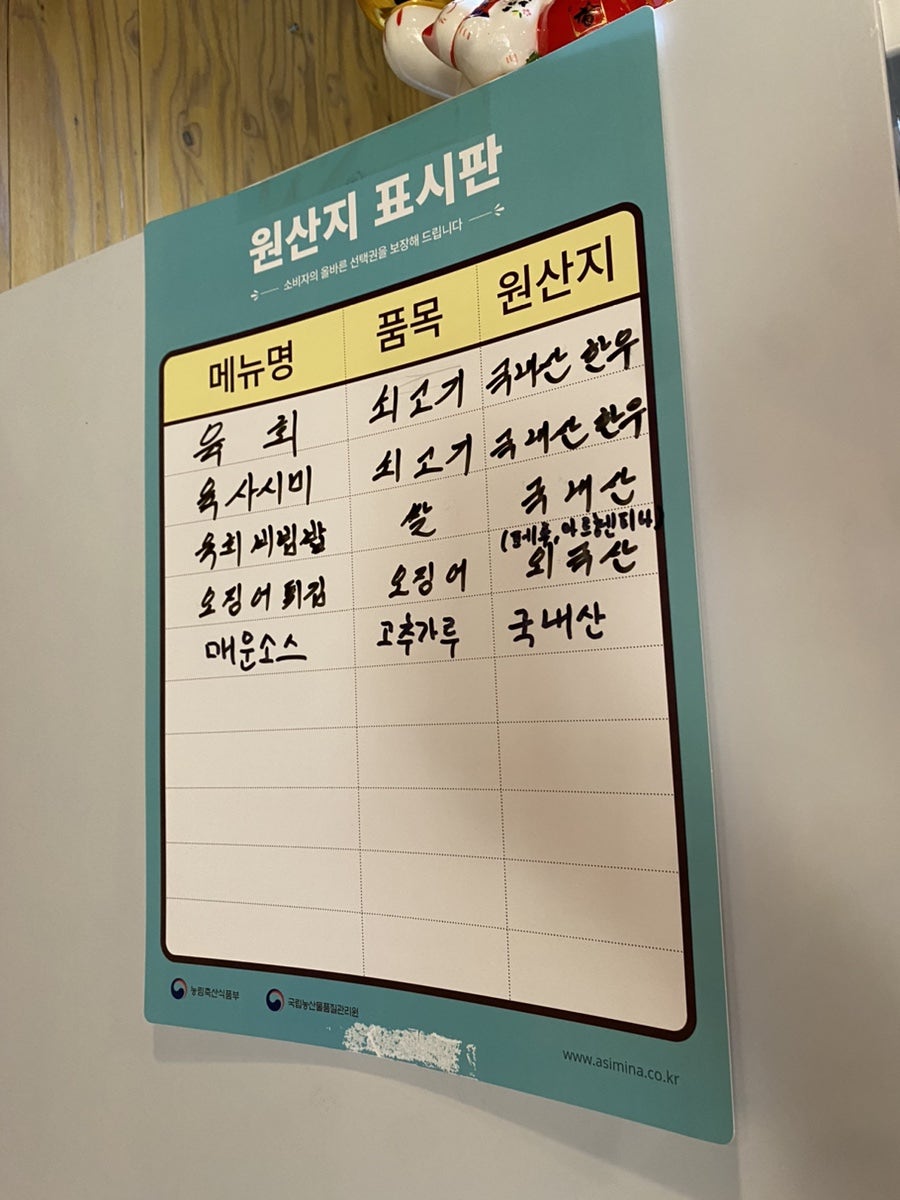 원산지 표시판
소비자의 올바른 선택권을 보장해 드립니다
메뉴명 품목 원산지
육 회 쇠고기 국내산 한우
육사시미 쇠고기 국내산 한우
육회비빔밥 쌀 국내산
(페루,아르헨티나)
오징어튀김 오징어 외국산
매운소스 고추가루 국내산
농림축산식품부 국립농산물품질관리원
www.asimina.co.kr